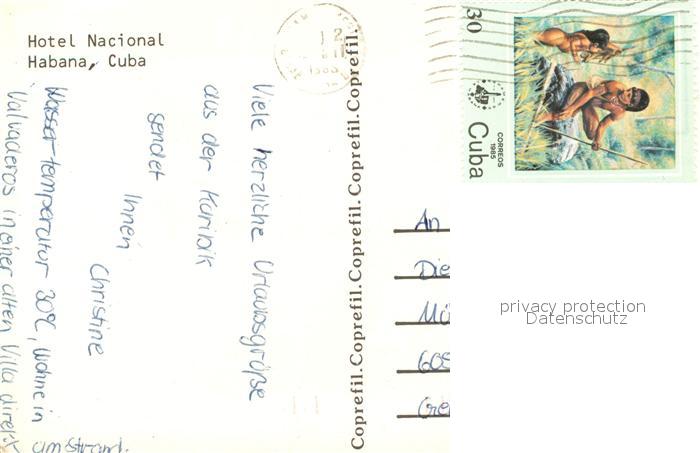 Hotel Nacional
Habana, Cuba
Viele herzliche Urlaubsgrüße
aus der Karibik
sendet
Ihnen
Christine
Wassertemperatur 30°C, wohne in
Valvaderos in einer alten Villa direkt
am Strand.
Coprefil.Coprefil.Coprefil.Coprefil.Coprefil.
30
Cuba
CORREOS
1985
An
Die
Mü
605
Gre
privacy protection
Datenschutz